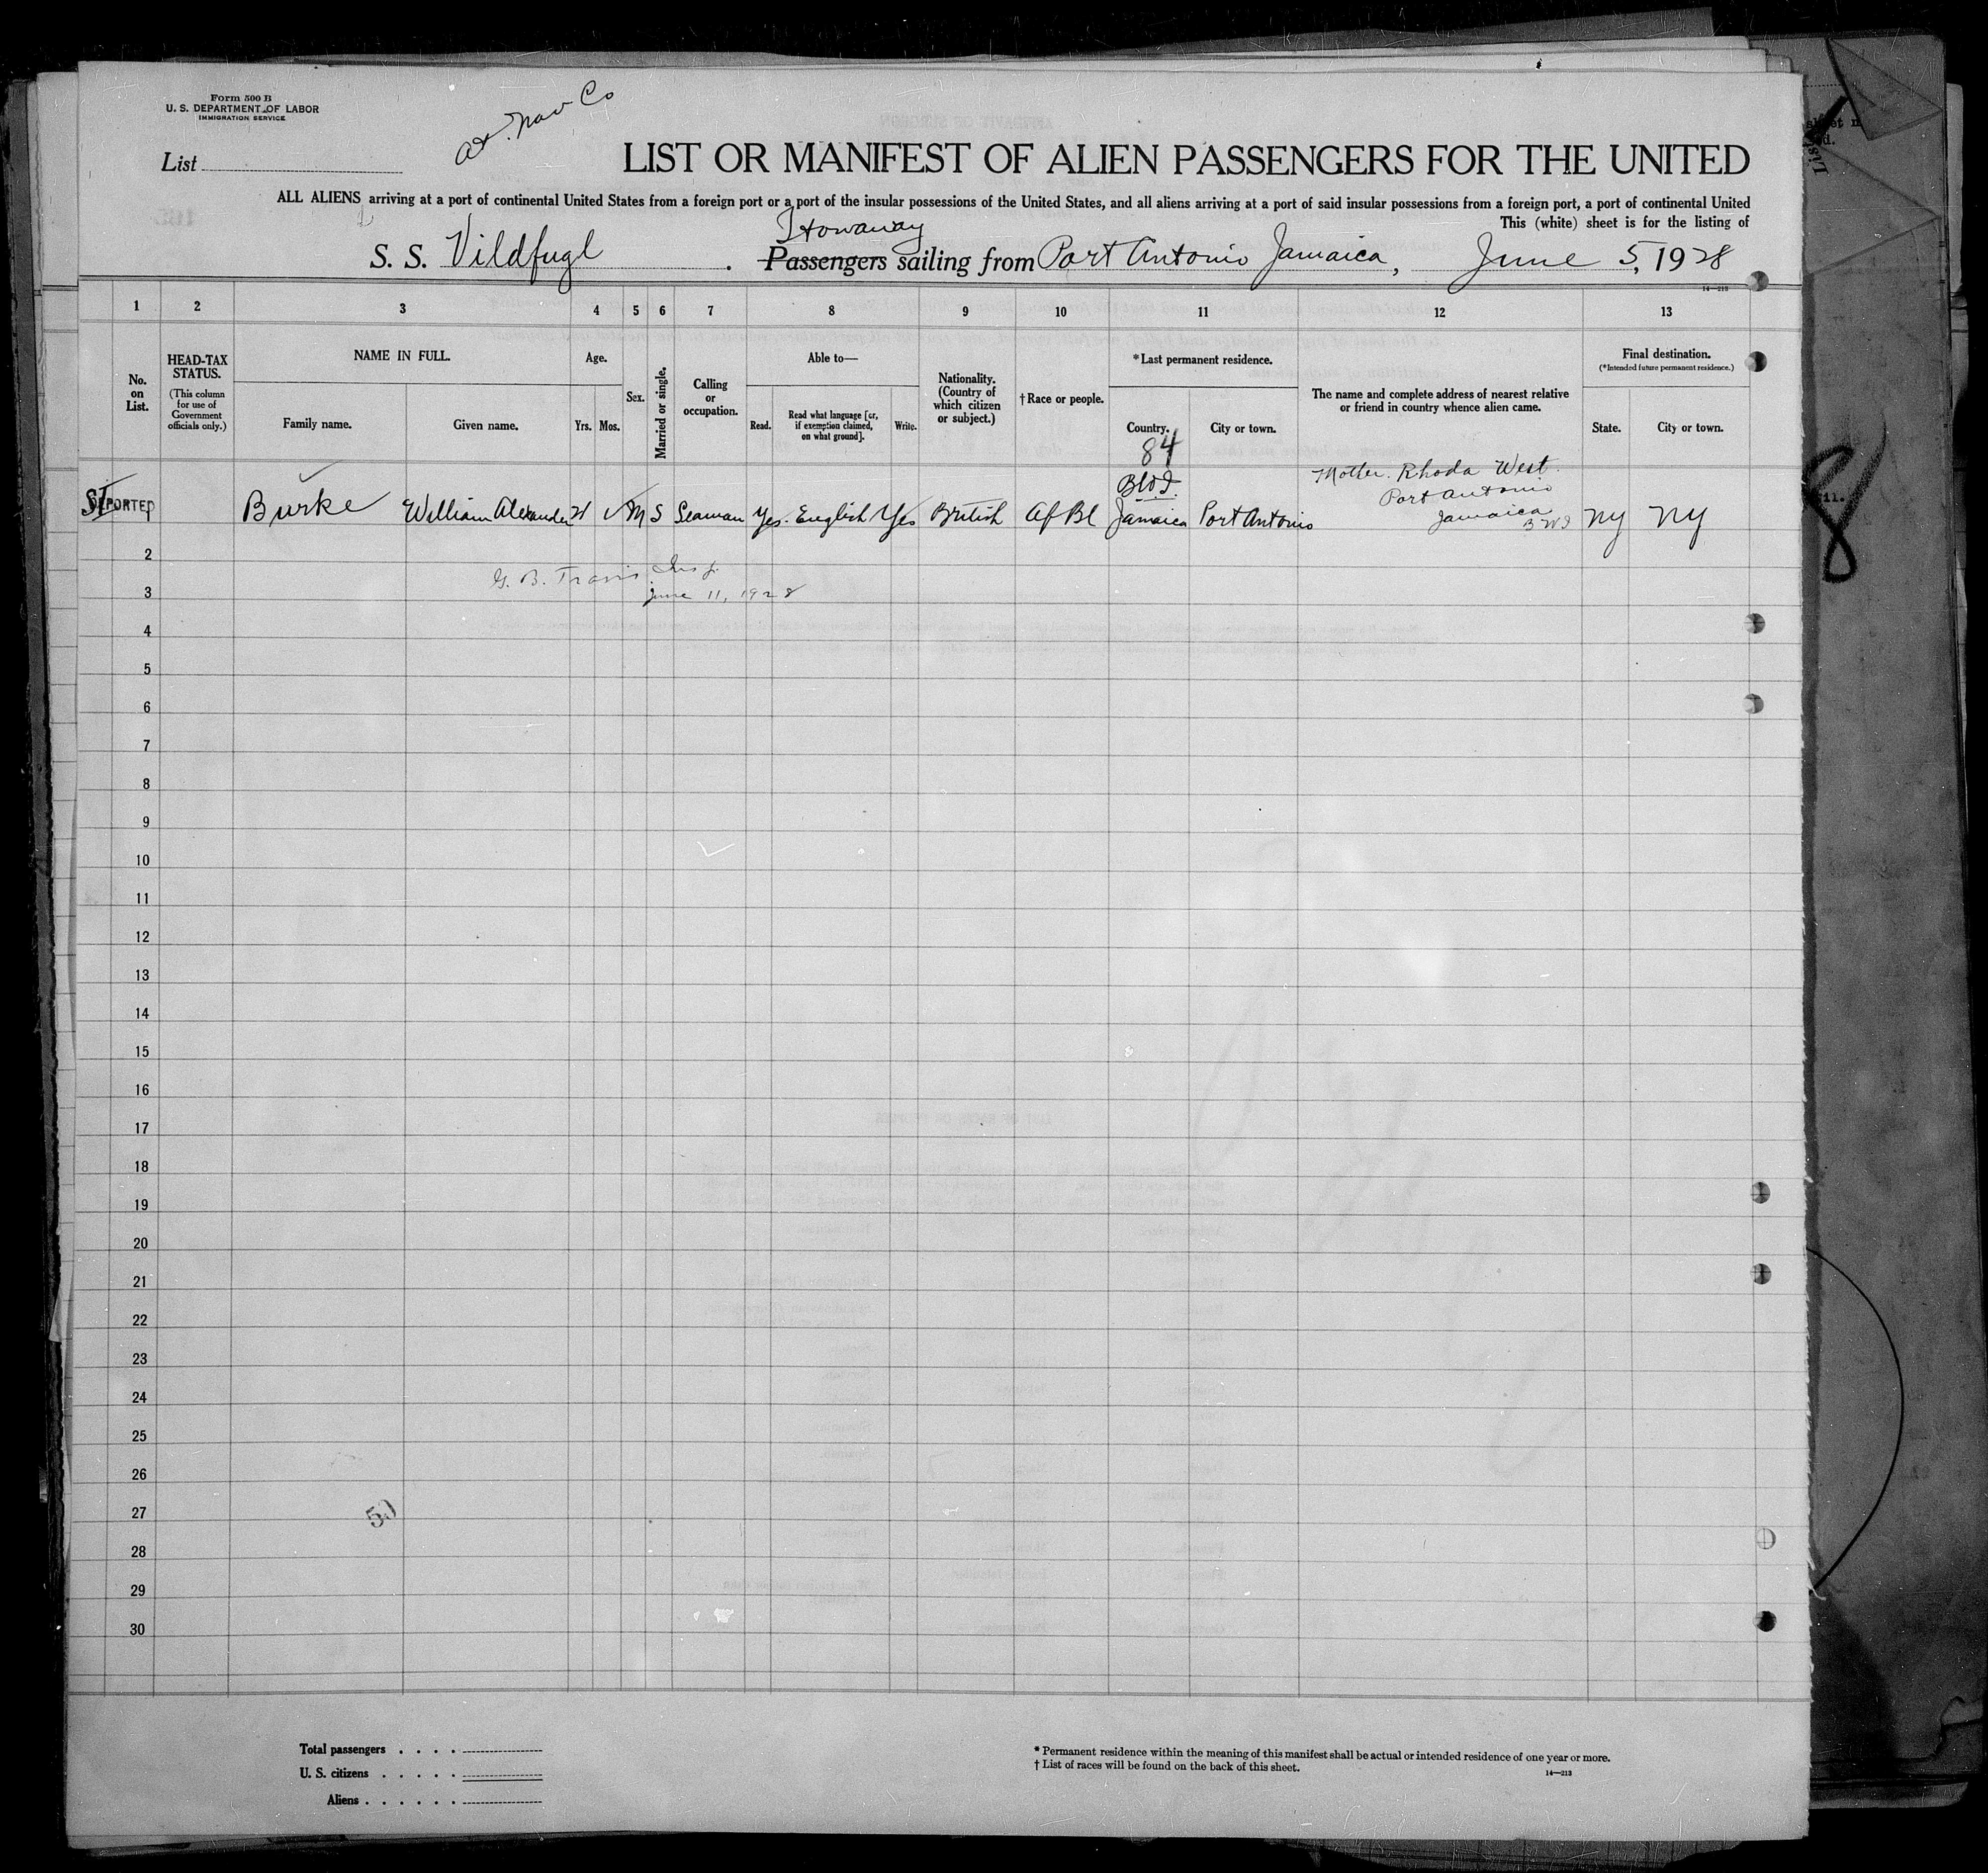 Form 500 B
U. S. DEPARTMENT OF LABOR
IMMIGRATION SERVICE
Nav Co
List
LIST OR MANIFEST OF ALIEN PASSENGERS FOR THE UNITED
ALL ALIENS arriving at a port of continental United States from a foreign port or a port of the insular possessions of the United States, and all aliens arriving at a port of said insular possessions from a foreign port, a port of continental United
This (white) sheet is for the listing of
Stowaway
S. S. Vildfugl . Passengers sailing from Port Antonio Jamaica, June 5, 1928
14—213
1 2 3 4 5 6 7 8 9 10 11 12 13
No. on List.
HEAD-TAX STATUS.
(This column for use of Government officials only.)
NAME IN FULL.
Family name.
Given name.
Age.
Yrs. Mos.
Sex.
Married or single.
Calling or occupation.
Able to—
Read.
Read what language [or, if exemption claimed, on what ground].
Write.
Nationality. (Country of which citizen or subject.)
†Race or people.
*Last permanent residence.
Country.
City or town.
The name and complete address of nearest relative or friend in country whence alien came.
Final destination.
(*Intended future permanent residence.)
State.
City or town.
84
B W I.
Mother. Rhoda West.
Port Antonio
Jamaica
B W I
DEPORTED
1 Burke William Alexander M S Seaman Yes. English Yes British Af Bl Jamaica Port Antonio NY NY
2
G. B. Travis Insp.
3
June 11, 1928
4
5
6
7
8
9
10
11
12
13
14
15
16
17
18
19
20
21
22
23
24
25
26
27
50
28
29
30
Total passengers . . . .
U. S. citizens . . . . .
Aliens . . . . . .
* Permanent residence within the meaning of this manifest shall be actual or intended residence of one year or more.
† List of races will be found on the back of this sheet.
14—213
8